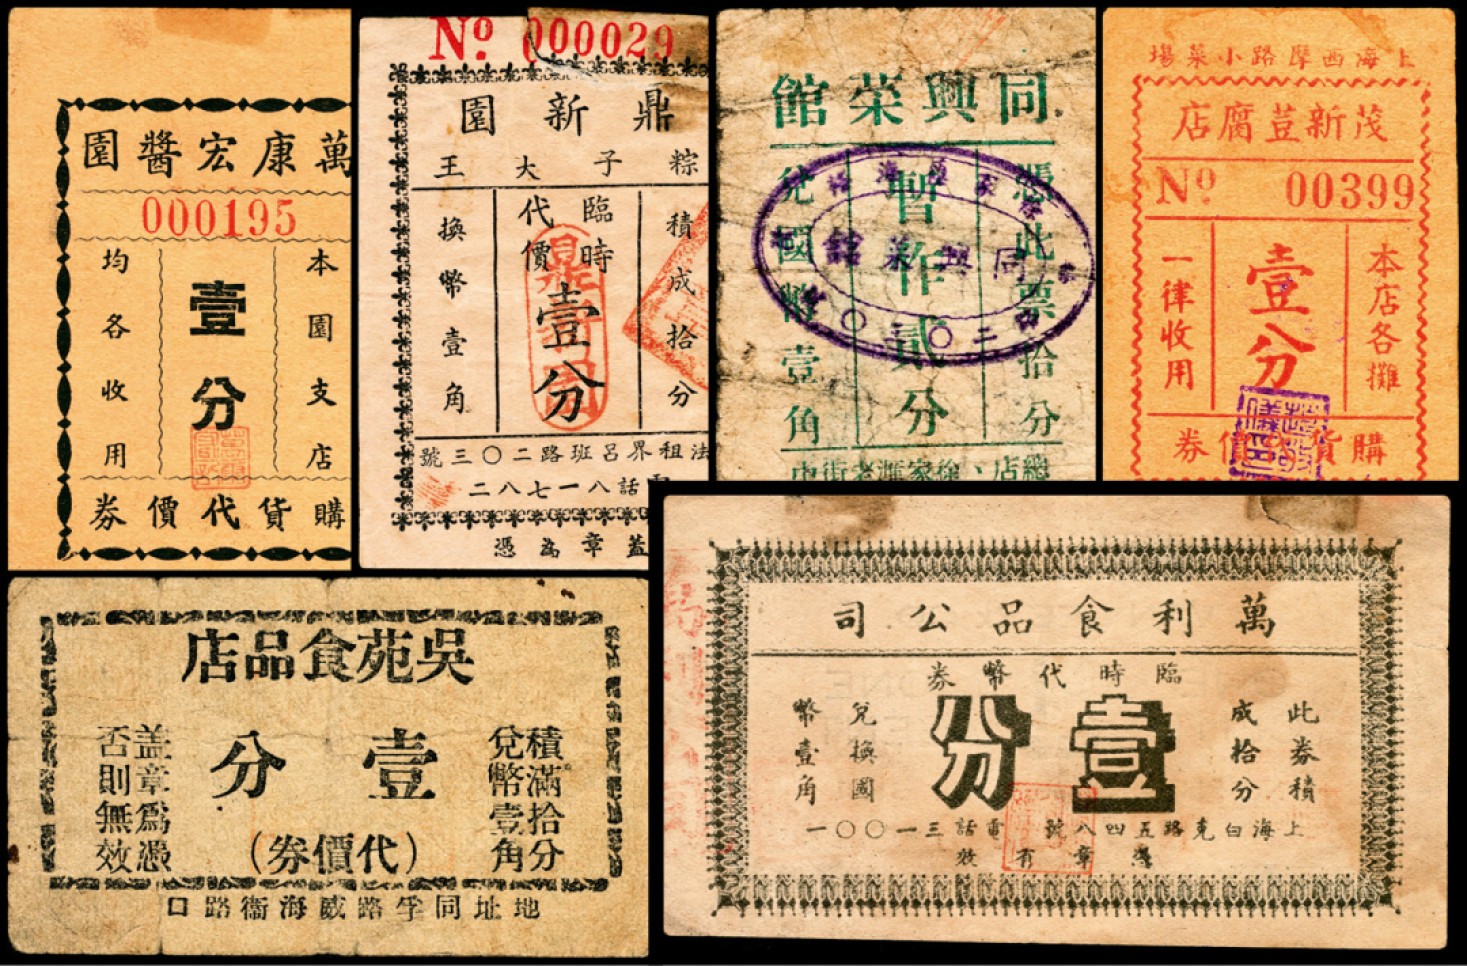 萬康宏醬園
000195
本園支店
壹分
均各收用
購貨代價券
No 000029
鼎新園
粽子大王
積成拾分
臨時
代價
壹分
換幣壹角
法租界呂班路二〇三號
電話八一七八二
蓋章為憑
同興菜館
憑此票拾分
暫作貳分
兌國幣壹角
同興菜館
總店、徐家滙老街中
上海西摩路小菜場
茂新荳腐店
No 00399
本店各攤
壹分
一律收用
購貨代價券
吳苑食品店
積滿拾分
兌幣壹角
壹分
(代價券)
盖章爲憑
否則無效
地址同孚路威海衞路口
萬利食品公司
臨時代幣券
此券積
成拾分
壹分
兌換國
幣壹角
上海白克路五四八號 電話三一〇〇一
憑章有效